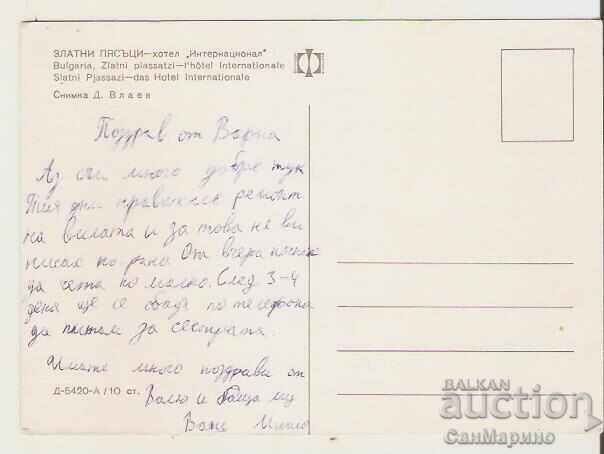 ЗЛАТНИ ПЯСЪЦИ—хотел „Интернационал"
Bulgaria, Zlatni piassatzi—l'hôtel Internationale
Slatni Pjassazi—das Hotel Internationale
Снимка Д. Влаев
Поздрав от Варна
Аз съм много добре тук
Тия дни правихме ремонт
на вилата и за това не ви
писах по рано. От вчера почнах
да чета по малко. След 3-4
дена ще се обадя по телефона
да питам за сестрата.
Имате много поздрави от
Вальо и баща му
Ваш
Д-5420-А/10 ст.
BALKAN
auction
СанМарино